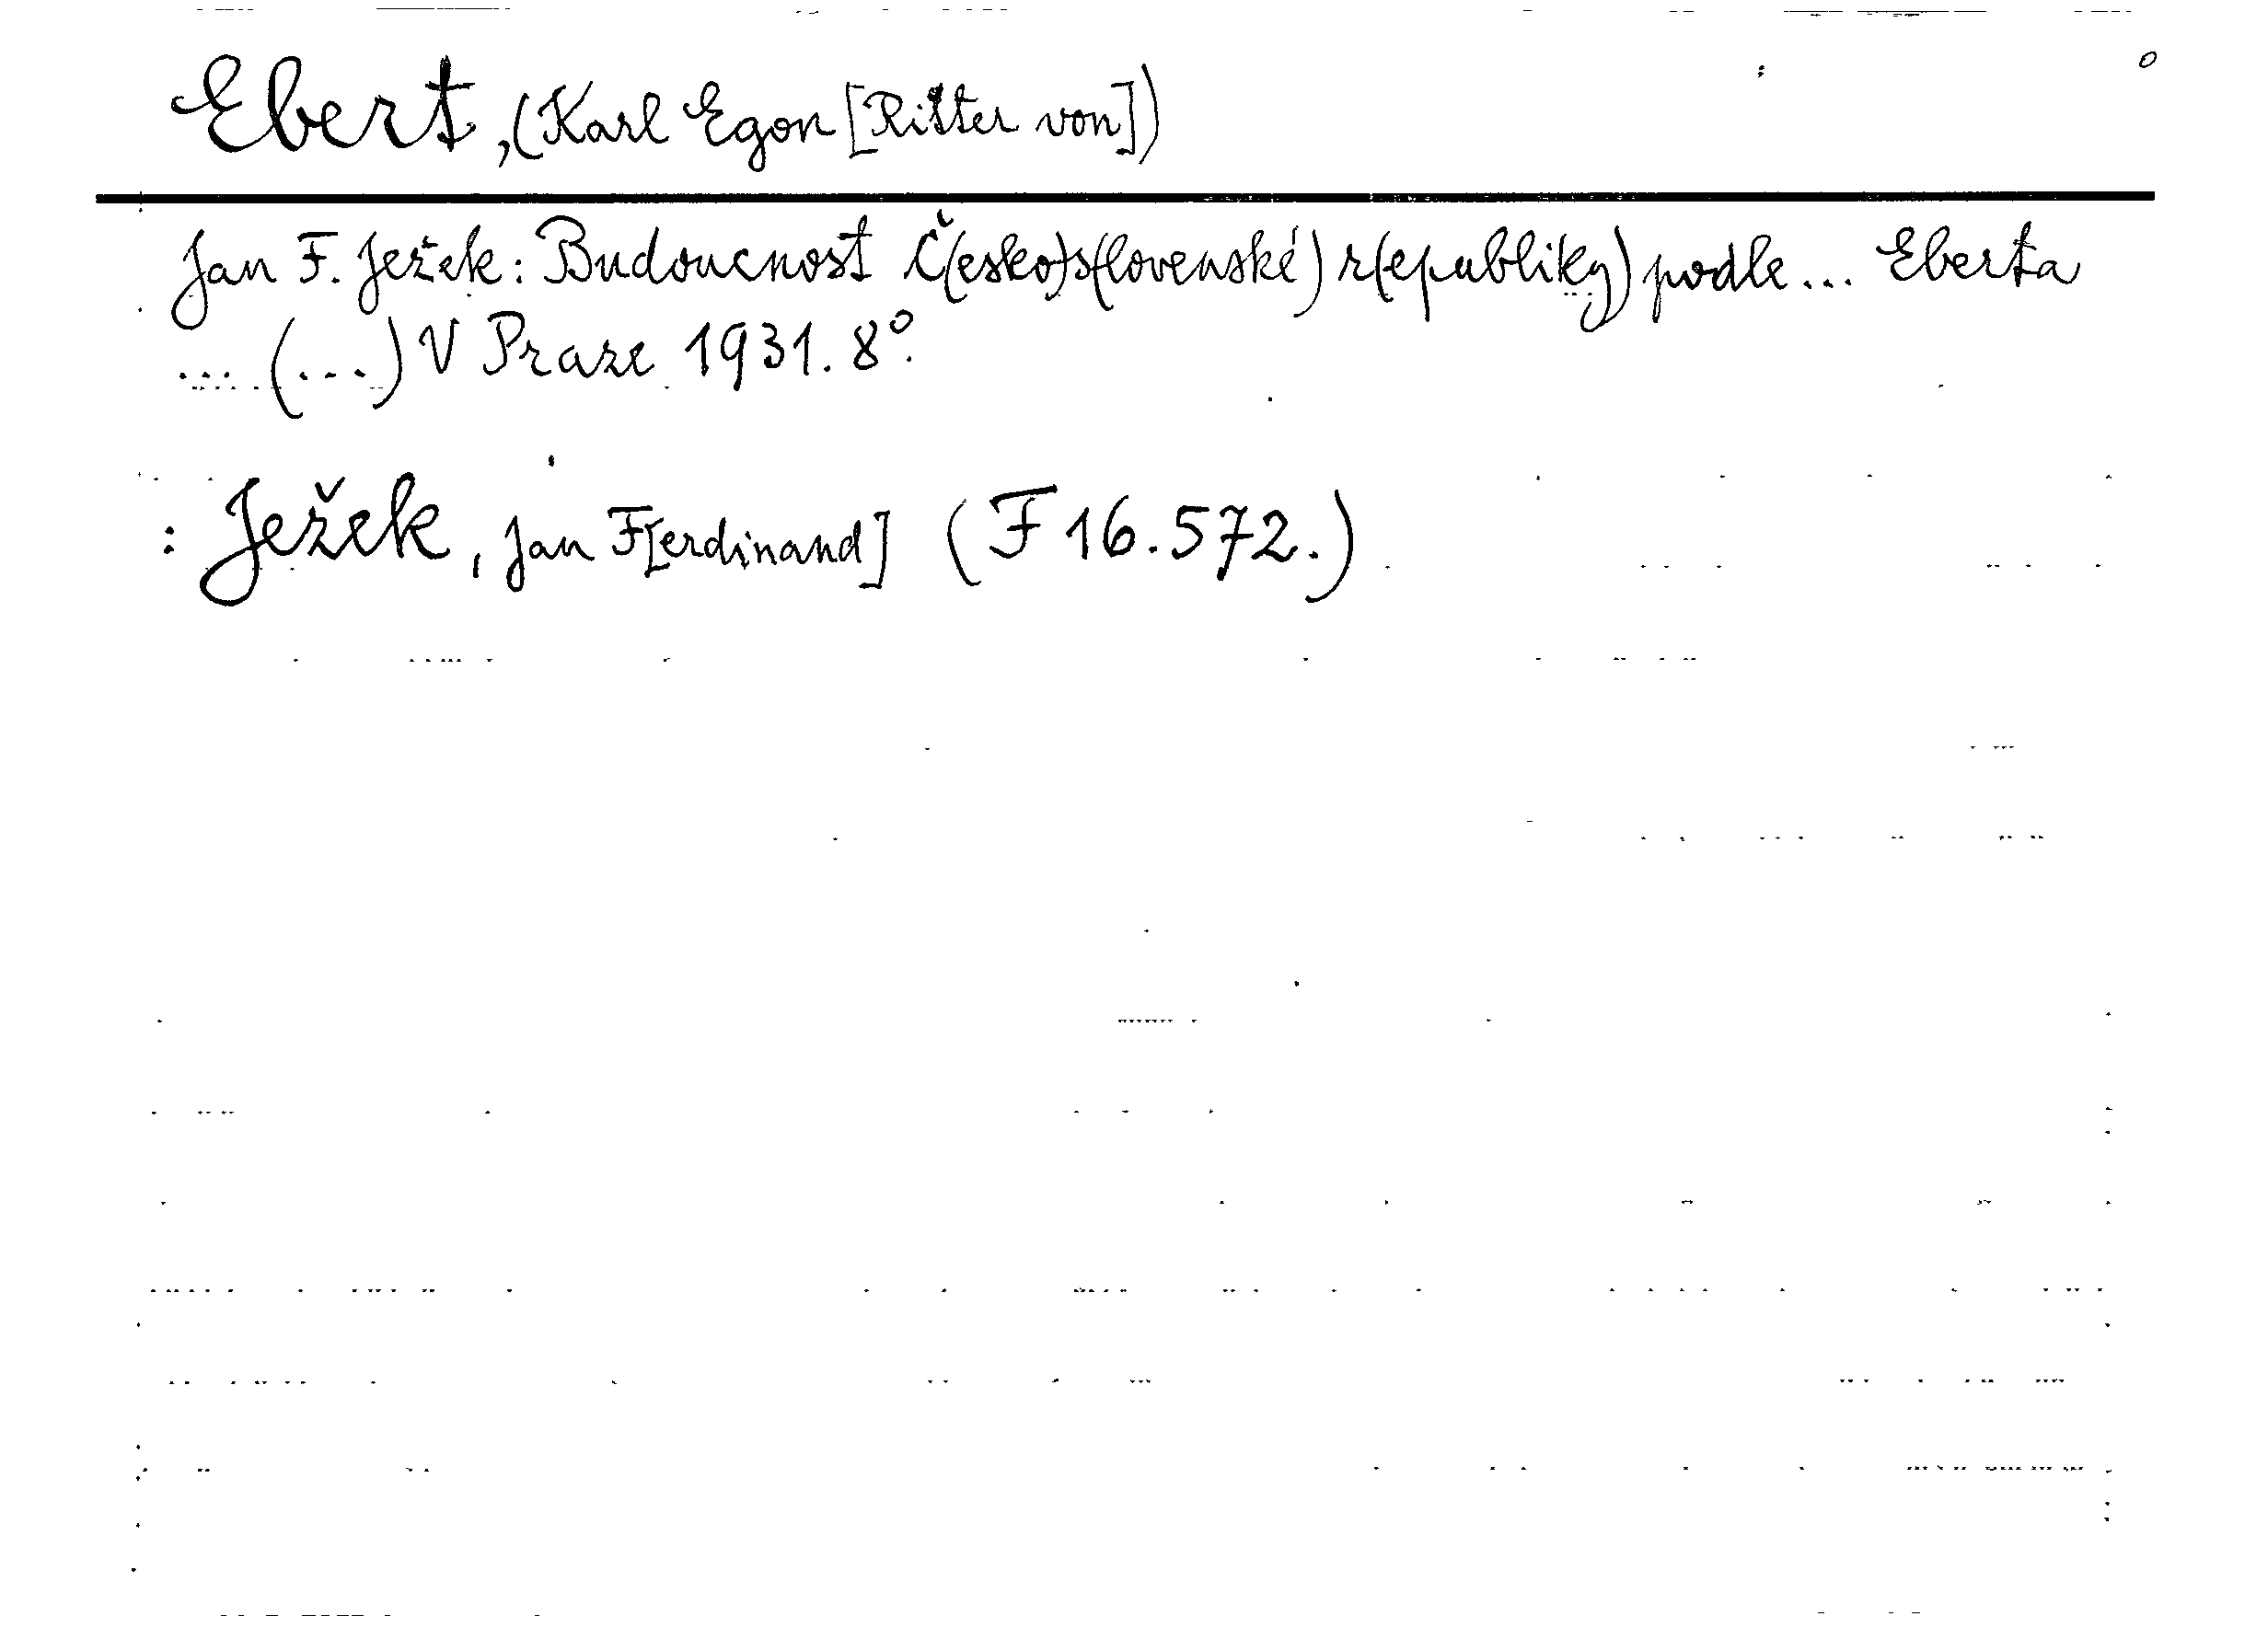 Ebert, (Karl Egon [Ritter von])
Jan F. Ježek: Budoucnost Č(esko)s(lovenské) r(epubliky) podle... Eberta
... (...) V Praze 1931. 8°.
: Ježek, Jan F[erdinand] (F 16.572.)